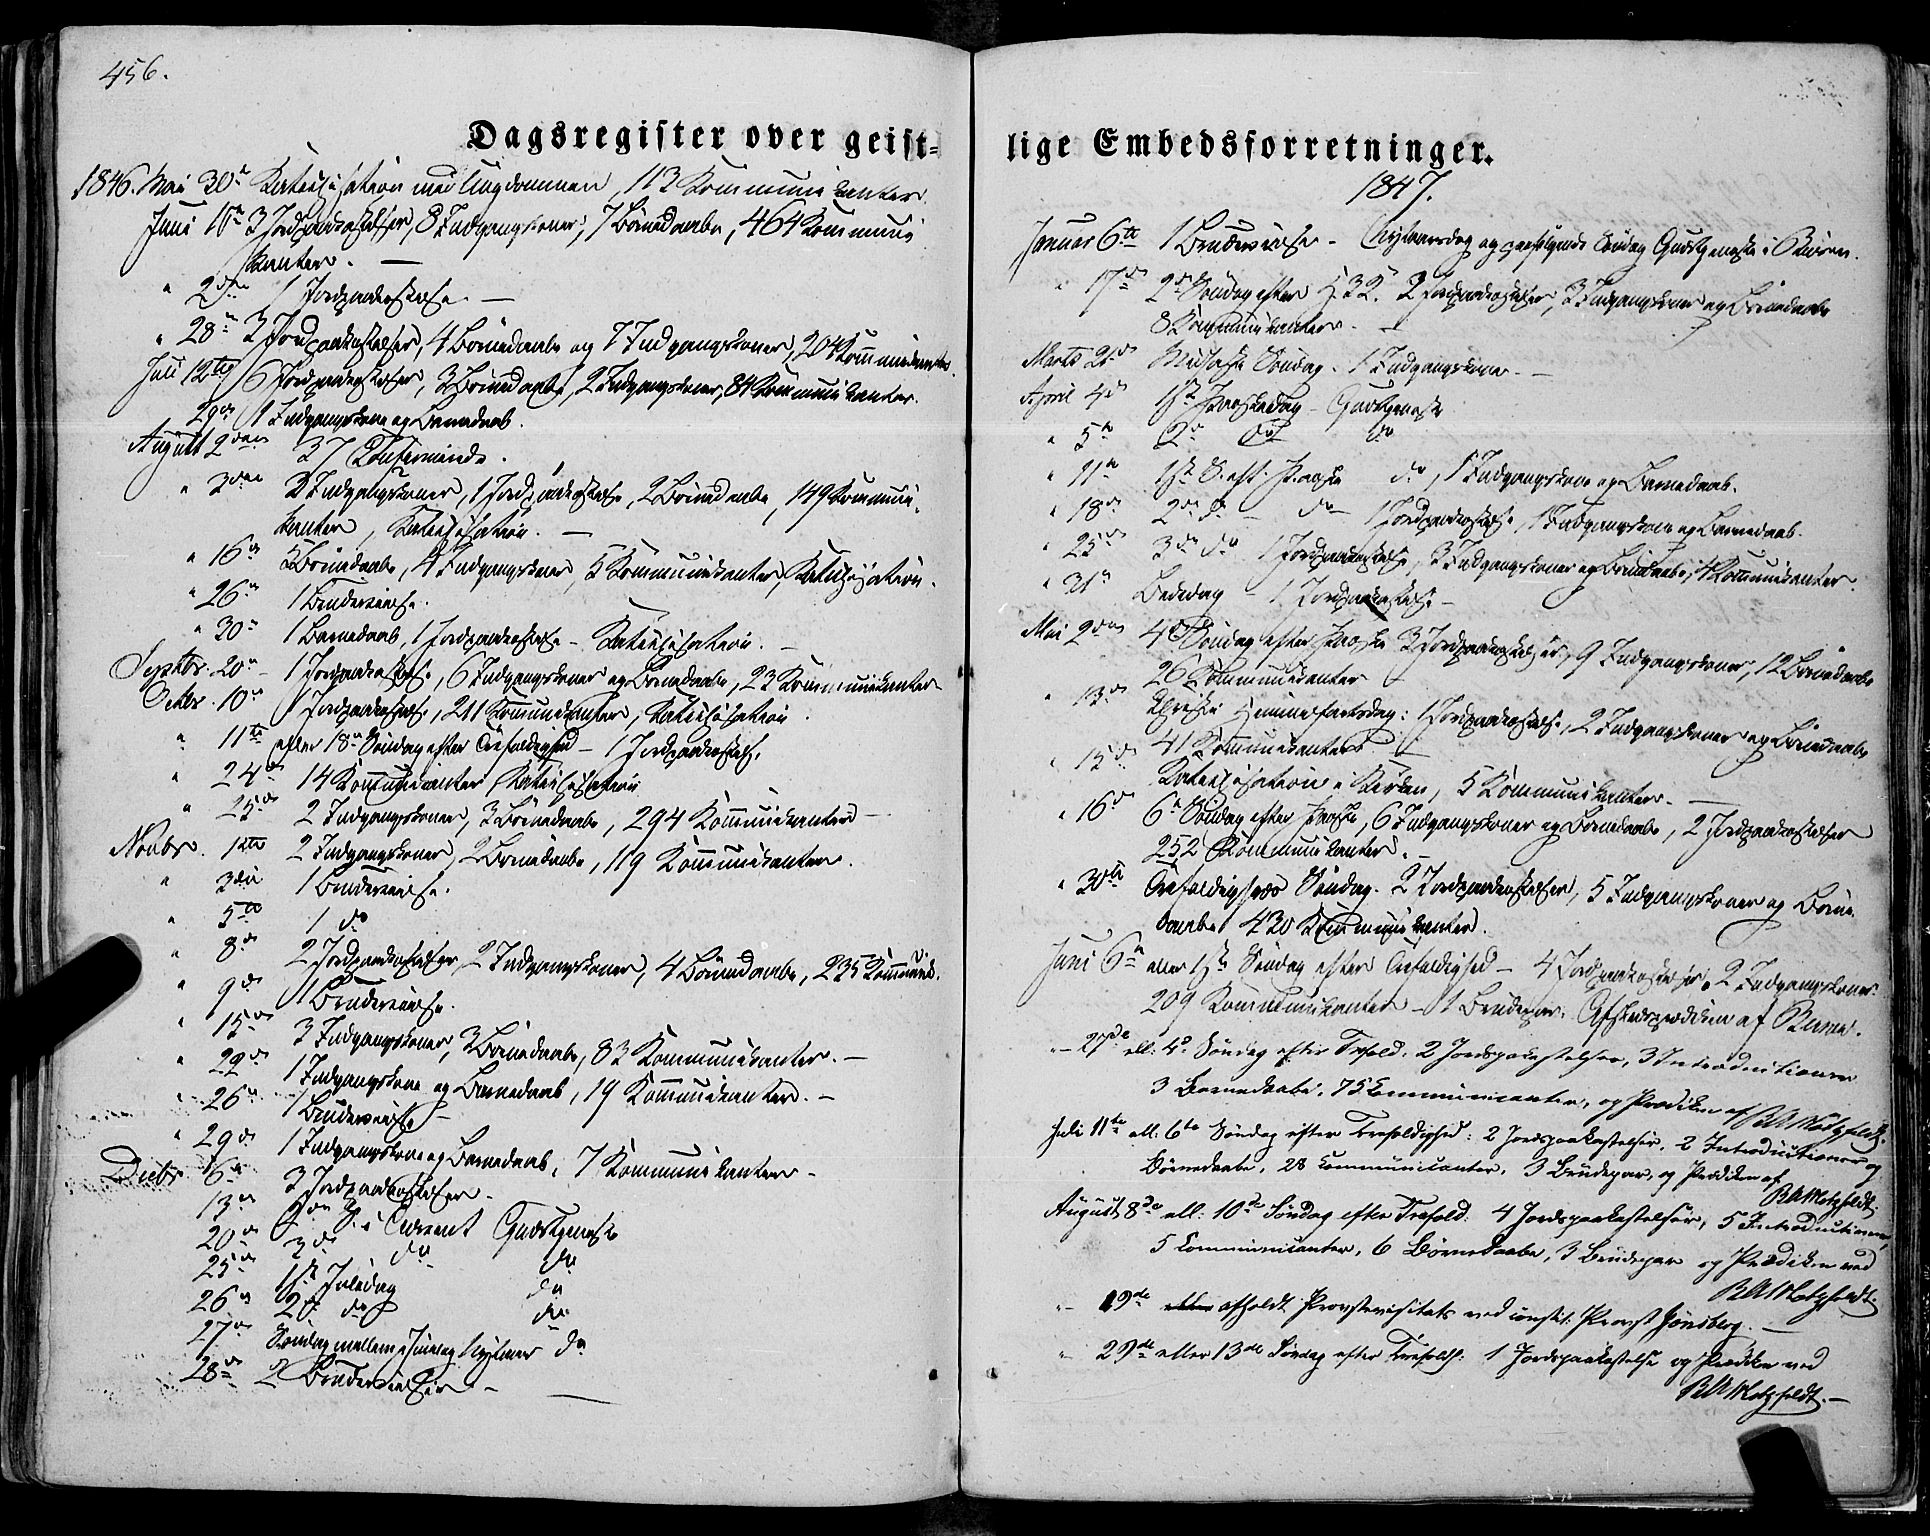 456.
Dagsregister over geist-
1846. Mai 30te Katechisation med Ungdommen, 113 Kommunikanter.
Juni 1ste 3 Jordpaakastelser, 8 Indgangskoner, 7 Børnedaabe, 464 Kommuni
kanter. —
" 2den 1 Jordpaakastelse. —
" 28de 3 Jordpaakastelser, 4 Børnedaabe og 7 Indgangskoner, 204 Kommunikanter.
Juli 12te 6 Jordpaakastelser, 3 Børnedaabe, 2 Indgangskoner, 84 Kommunikanter.
29de 1 Indgangskone og Barnedaab.
August 2den 37 Confirmerede.
" 3die 3 Indgangskoner, 1 Jordpaakastelse, 2 Børnedaabe, 149 Kommuni-
kanter, Katechisation. —
" 16de 5 Børnedaabe, 4 Indgangskoner, 5 Kommunikanter, Katechisation.
" 26de 1 Brudevielse.
" 30te 1 Barnedaab, 1 Jordpaakastelse - Katechisation. —
Septbr. 20de 1 Jordpaakastelse, 6 Indgangskoner og Børnedaabe, 23 Kommunikanter
Octbr. 10de 1 Jordpaakastelse, 211 Kommunikanter, Katechisation.
" 11te eller 18de Søndag efter Trefoldighed - 1 Jordpaakastelse.
" 24de 14 Kommunikanter, Katechisation
" 25de 2 Indgangskoner, 3 Børnedaabe, 294 Kommunikanter —
Novbr. 1ste 2 Indgangskoner, 2 Børnedaabe, 119 Kommunikanter.
" 3die 1 Brudevielse.
" 5te 1 do
" 8de 2 Jordpaakastelser, 2 Indgangskoner, 4 Børnedaabe, 235 Kommunik.
" 9de 1 Brudevielse.
" 15de 3 Indgangskoner, 3 Børnedaabe, 83 Kommunikanter. —
" 22de 1 Indgangskone og Barnedaab, 19 Kommunikanter. —
" 26de 1 Brudevielse —
" 29de 1 Indgangskone og Barnedaab, 7 Kommunikanter -
Decbr 6te 3 Jordpaakastelser. -
13de 3die S. i Advent Gudstjeneste
20de 4de do do
25de 1ste Juledag do
26de 2den do do
27de Søndag mellem Juul og Nytaar do
28de 2 Brudevielser - —
lige Embedsforretninger.
1847.
Januar 6te 1 Brudevielse - Nytaarsdag og paafølgende Søndag Gudstjeneste i
" 17de 2den Søndag efter H. 3 K. 2 Jordpaakastelser, 3 Indgangskoner og Børnedaabe
8 Kommunikanter. —
Marts 21de Søndag. 1 Indgangskone. —
April 4de 1ste Paaskedag - Gudstjeneste
" 5te 2den do do
" 11te 1ste S. eft. Paaske do, 1 Indgangskone og Barnedaab.
" 18de 2den do - do 1 Jordpaakastelse, 1 Indgangskone og Barnedaab.
" 25de 3die do 1 Jordpaakastelse, 3 Indgangskoner og Børnedaabe, 4 Kommunikanter
" Bededag - 1 Jordpaakastelse —
Mai 2den 4de Søndag efter Paaske 3 Jordpaakastelser, 9 Indgangskoner, 12 Børnedaabe
26 Kommunikanter
" 13de Christi Himmelfartsdag: 1 Jordpaakastelse, 2 Indgangskoner og Børnedaabe
41 Kommunikanter —
" 15de Katechisation i Kirken, 5 Kommunikanter. —
" 16de 6te Søndag efter Paaske, 6 Indgangskoner og Børnedaabe, 2 Jordpaakastelser
252 Kommunikanter. —
" 30te Trefoldigheds Søndag. 2 Jordpaakastelser, 5 Indgangskoner og Børne
daabe 430 Kommunikanter.
Juni 6te eller 1ste Søndag efter Trefoldighed - 4 Jordpaakastelser, 2 Indgangskoner
209 Kommunikanter - 1 Brudepar. Afskedsprædiken af
" - 27de ell: 4de Søndag efter Trefold. 2 Jordspaakastelser, 3 Introductioner
3 Barnedaabe, 75 Communicanter, og Prædiken af RA Motzfeldt.
Juli 11te ell: 6te Søndag efter Trefoldighed: 2 Jordspaakastelser, 2 Introductioner og
Børnedaabe, 28 Communicanter, 3 Brudepar, og Prædiken af
RA Motzfeldt.
August 8de ell: 10de Søndag efter Trefold. 4 Jordspaakastelser, 5 Introductioner,
5 Communicanter, 6 Børnedaabe, 3 Brudepar og Prædiken ved
RA Motzfeldt.
" - 19de afholdt Provstevisitats ved const: Provst Jønsberg. —
" - 29de eller 13de Søndag efter Trefoldh: 1 Jordspaakastelse og Prædiken ved
RA Motzfeldt. —